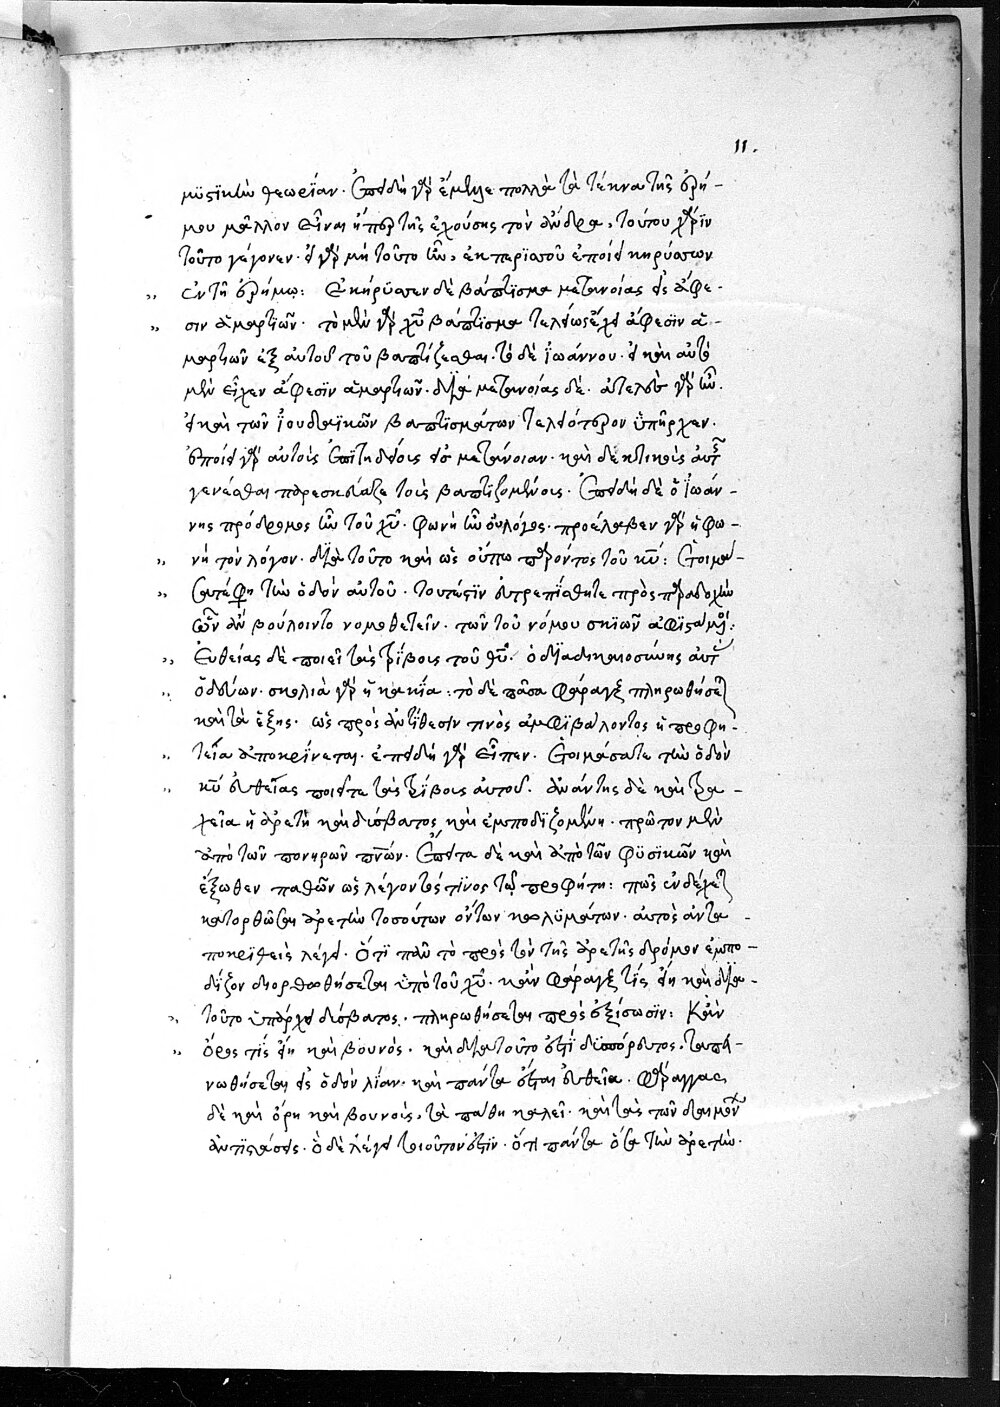 11.
μυστικὴν θεωρίαν. Ἐπειδὴ γὰρ ἔμελλε πολλὰ τὰ τέκνα τῆς ἐρή-
μου μᾶλλον εἶναι ἤπερ τῆς ἐχούσης τὸν ἄνδρα, τούτου χάριν
τοῦτο γέγονεν. εἰ γὰρ μὴ τοῦτο ἦν, ἐκ περισσοῦ ἐποίει κηρύσσων
ἐν τῇ ἐρήμῳ: Ἐκήρυσσεν δὲ βάπτισμα μετανοίας εἰς ἄφε-
σιν ἁμαρτιῶν. τὸ μὲν γὰρ χῦ βάπτισμα τελείως ἔχει ἄφεσιν ἁ-
μαρτιῶν ἐξ αὐτοῦ τοῦ βαπτίζεσθαι. τὸ δὲ Ἰωάννου. εἰ καὶ αὐτὸ
μὲν εἶχεν ἄφεσιν ἁμαρτιῶν. διὰ μετανοίας δέ. ἀτελὲς γὰρ ἦν.
εἰ καὶ τῶν Ἰουδαϊκῶν βαπτισμάτων τελειότερον ὑπῆρχεν.
ἐποίει γὰρ αὐτοὺς ἐπιτηδείους εἰς μετάνοιαν. καὶ δεκτικοὺς αὐτ
γενέσθαι παρεσκεύαζε τοὺς βαπτιζομένους. Ἐπειδὴ δὲ ὁ Ἰωάν-
νης πρόδρομος ἦν τοῦ χῦ. φωνὴ ἦν ὁ λόγος. προέλαβεν γὰρ ἡ φω-
νὴ τὸν λόγον. διὰ τοῦτο καὶ ὡς οὔπω παρόντος τοῦ κῦ: Ἑτοιμά-
σατέ φη τὴν ὁδὸν αὐτοῦ. τουτέστιν εὐτρεπίσθητε πρὸς παραδοχὴν
ὧν ἂν βούλοιντο νομοθετεῖν. τῶν τοῦ νόμου σκιῶν ἀφιστάμενοι:
Εὐθείας δὲ ποιεῖ τὰς τρίβους τοῦ θῦ. ὁ διὰ δικαιοσύνης αὐτὴν
ὁδεύων. σκολιὰ γὰρ ἡ κακία: τὸ δὲ πᾶσα φάραγξ πληρωθήσεται
καὶ τὰ ἑξῆς. ὡς πρὸς ἀντίθεσιν τινὸς ἀμφιβάλοντος ἡ προφη-
τεία ἀποκρίνεται. ἐπειδὴ γὰρ εἶπεν. Ἑτοιμάσατε τὴν ὁδὸν
κῦ εὐθείας ποιεῖτε τὰς τρίβους αὐτοῦ. ἀνάντης δὲ καὶ τρα-
χεῖα ἡ ἀρετὴ καὶ δύσβατος καὶ ἐμποδιζομένη. πρῶτον μὲν
ἀπὸ τῶν πονηρῶν πνῶν. Ἔπειτα δὲ καὶ ἀπὸ τῶν φυσικῶν καὶ
ἔξωθεν παθῶν ὡς λέγοντός τινος τῷ προφήτη: πῶς ἐνδέχεται
κατορθῶσαι ἀρετὴν τοσούτων ὄντων κωλυμάτων. αὐτὸς ἀντα-
ποκριθεὶς λέγει. Ὅτι πᾶν τὸ πρὸς τὸν τῆς ἀρετῆς δρόμον ἐμπο-
δίζον διορθωθήσεται ὑπὸ τοῦ χῦ. κἂν φάραγξ τίς εἴη καὶ διὰ-
τοῦτο ὑπάρχει δύσβατος. πληρωθήσεται πρὸς ἐξίσωσιν: Κἂν
ὄρος τίς εἴη καὶ βουνός. καὶ διὰ τοῦτο ἐστὶ δυσπόρευτος. ταπει-
νωθήσεται εἰς ὁδὸν λίαν. καὶ πάντα ἔσται εὐθεῖα. Φάραγγας
δὲ καὶ ὄρη καὶ βουνοὺς, τὰ πάθη καλεῖ. καὶ τὰς τῶν δαιμόνων
ἀντιστάσεις. ὁ δὲ λέγει τοιοῦτον ἐστιν. ὅτι πάντα ὅσα τὴν ἀρετὴν.